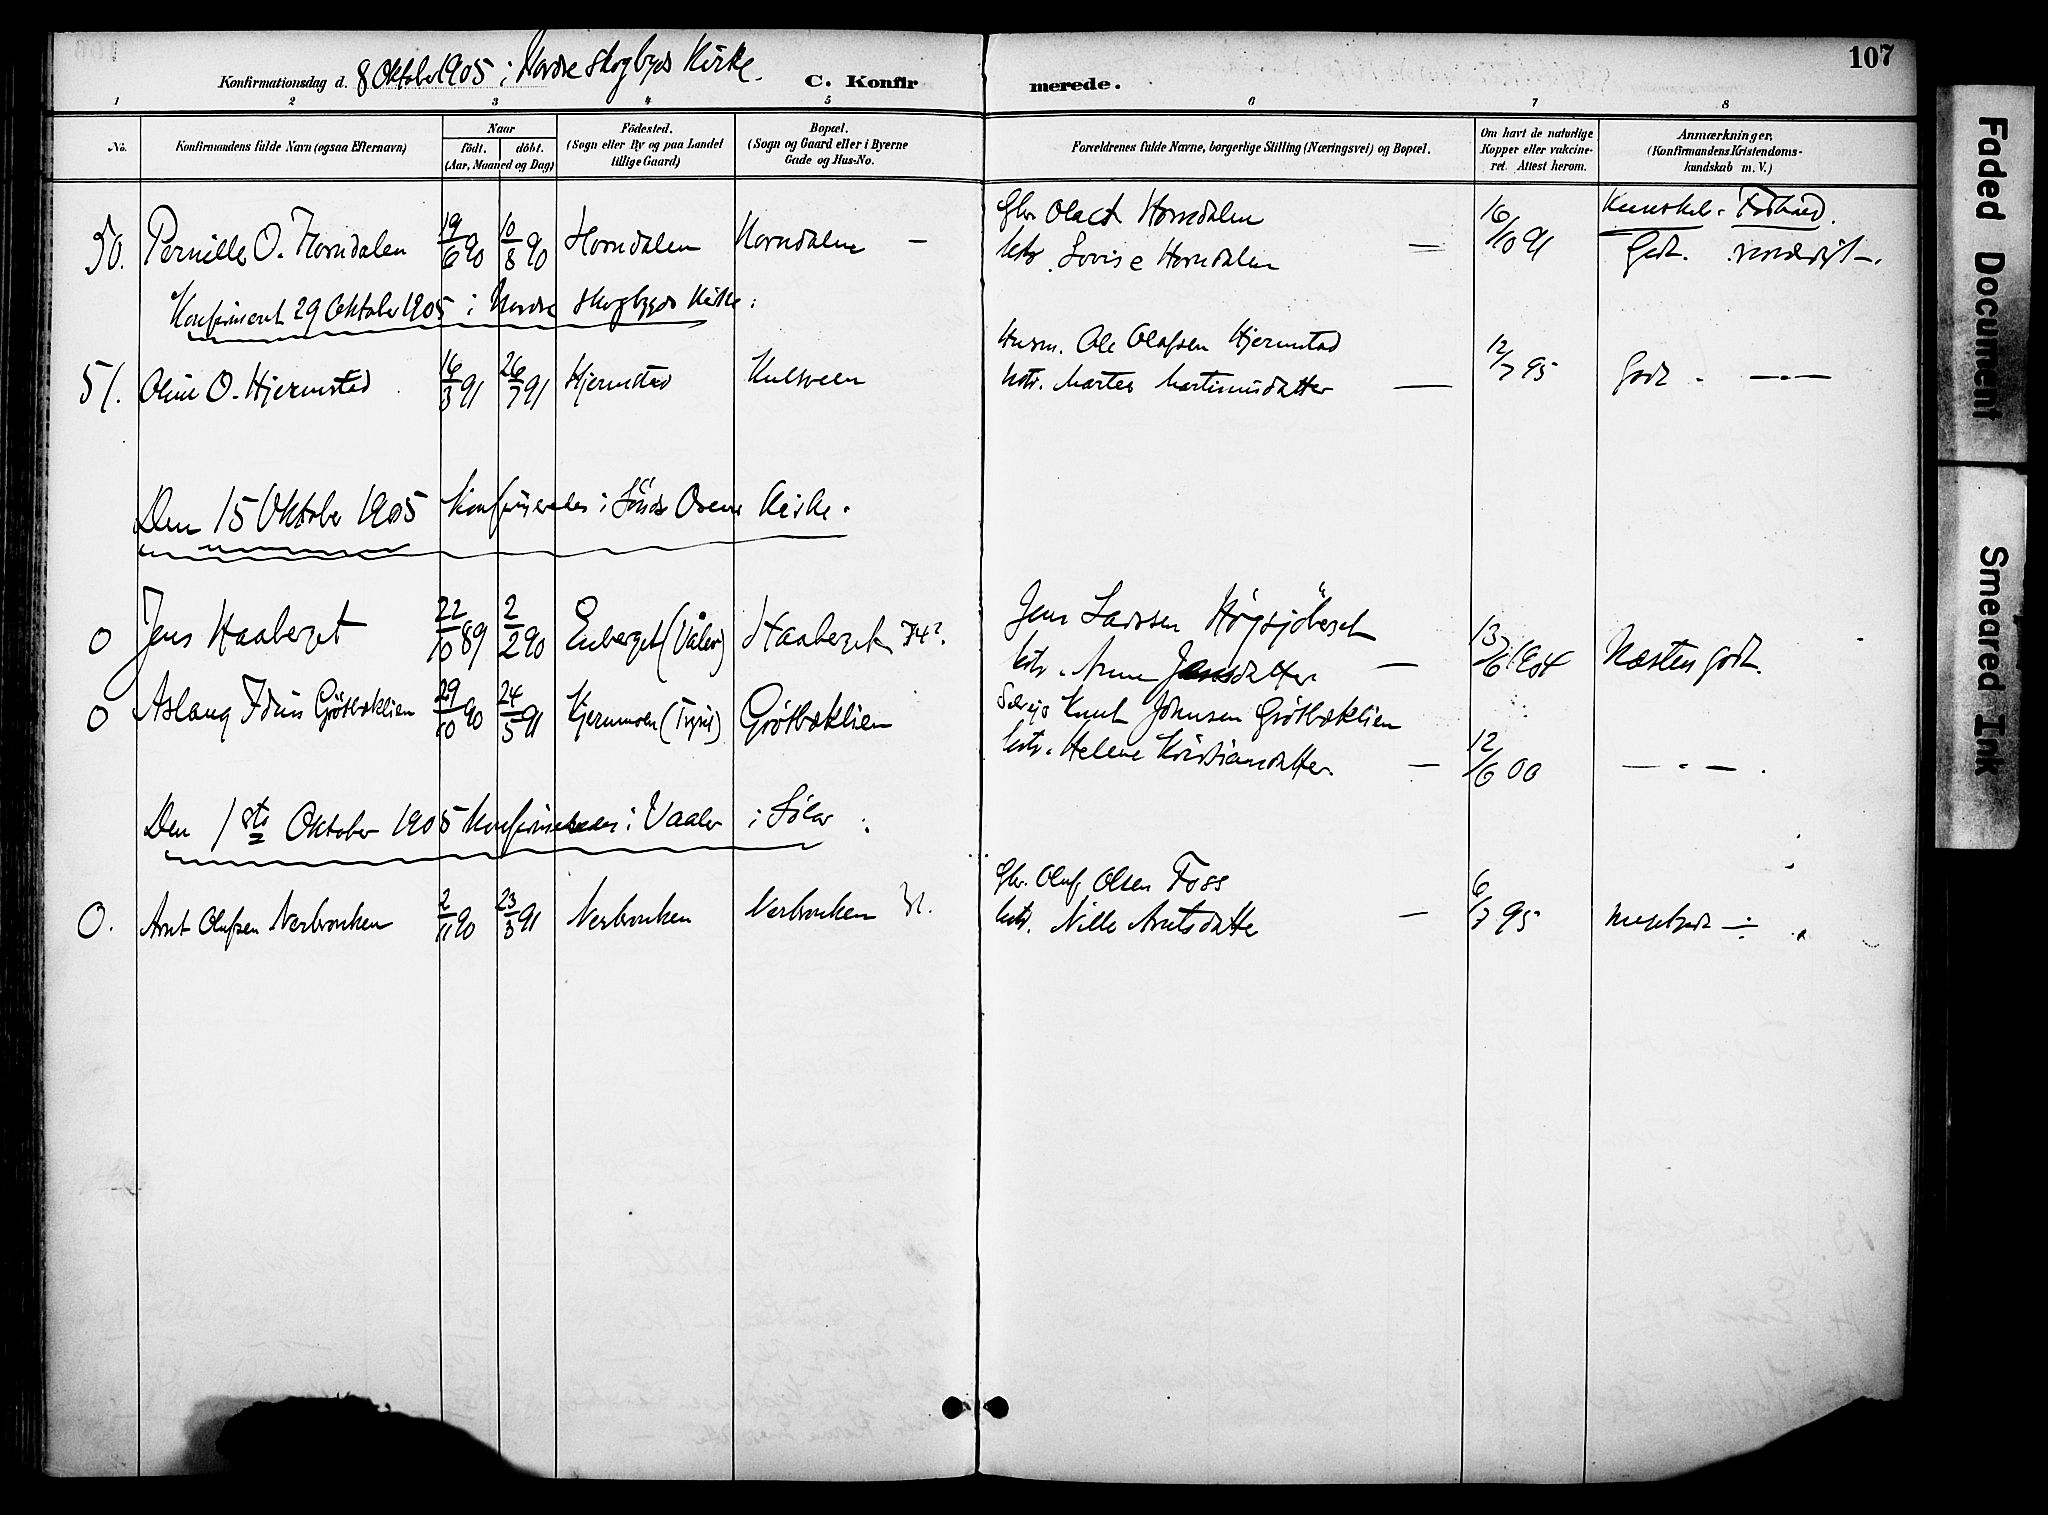 107
Konfirmationsdag d. 8 Oktober 1905 i Nordre Skogbyds Kirke. C. Konfirmerede.
1 2 3 4 5 6 7 8
No. Konfirmandens fulde Navn (ogsaa Efternavn) Naar födt. döbt. (Aar, Maaned og Dag) Födested. (Sogn eller By og paa Landet tillige Gaard) Bopæl. (Sogn og Gaard eller i Byerne Gade og Hus-No. Forældrenes fulde Navne, borgerlige Stilling (Næringsvei) og Bopæl. Om havt de naturlige Kopper eller vakcineret. Attest herom. Anmærkninger. (Konfirmandens Kristendomskundskab m. V.)
Kunskab. Forhold.
50. Pernille O. Horndalen 19/6 90 10/8 90 Horndalen Horndalen — Gbr. Olaf Horndalen
Hstr. Lovise Horndalen = 16/10 91 Godt.
Konfirmeret 29 Oktober 1905 i Nordre Skogbygds Kirke:
51. Oline O. Hjermstad 16/3 91 26/7 91 Hjermstad Husm. Ole Olafsen Hjermstad
Hstr. Marte Martinusdatter — 12/7 95 Godt. —.—
Den 15 Oktober 1905 Konfirmeredes i Søndre Osens Kirke.
0 Jens Haaberget 22/10 89 2/2 90 Enberget (Våler) Haaberget Jens Larsen
Hstr. Anne Jensdatter — 13/6 1904 Næsten godt.
0 Aslaug Idun Grøtbæklien 29/10 90 24/5 91 Hjermoen (Trysil) Grøtbæklien Knut Johnsen Grøtbæklien
Hstr. Helene Kristiansdatter — 12/6 00 —.—.
Den 1ste Oktober 1905 Konfirmeredes i Vaaler i Solør:
0. Arnt Olufsen Nerbronken 2/11 90 23/3 91 Nerbronken Nerbronken Gbr. Oluf Olsen Foss
Hstr. Nille Arntsdatter — 6/7 95 Megetgodt —
Faded Document
Smeared Ink